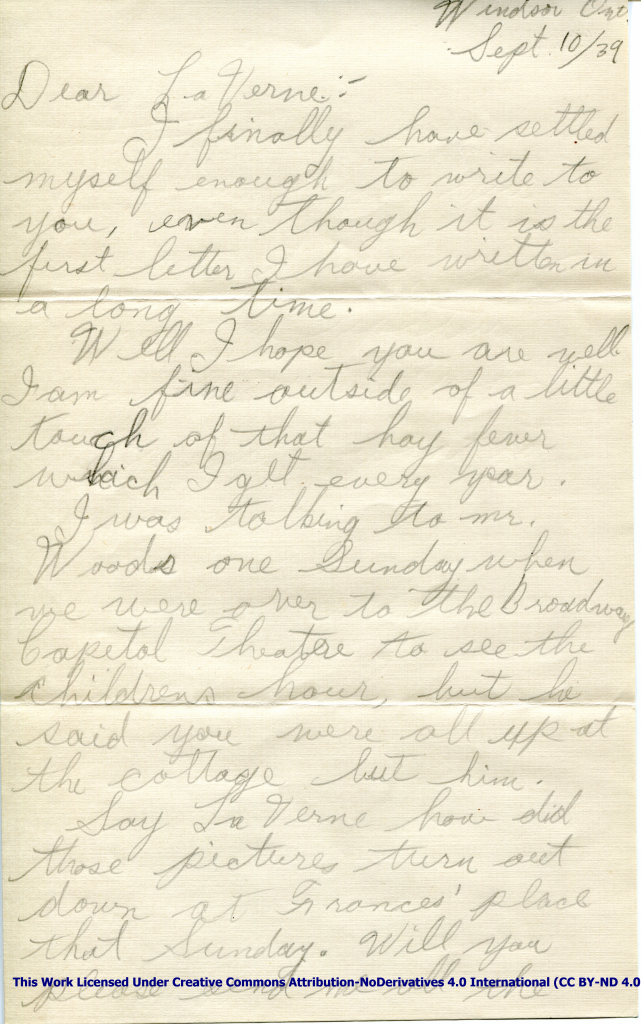 Windsor Ont.
Sept. 10/39
Dear La Verne:-
I finally have settled
myself enough to write to
you, even though it is the
first letter I have written in
a long time.
Well I hope you are well
I am fine outside of a little
touch of that hay fever
which I get every year.
I was talking to mr.
Woods one Sunday when
we were over to the Broadway
Capetol Theatre to see the
childrens hour, but he
said you were all up at
the cottage but him.
Say La Verne how did
those pictures turn out
down at Frances' place
that Sunday. Will you
This Work Licensed Under Creative Commons Attribution-NoDerivatives 4.0 International (CC BY-ND 4.0
please send me all the